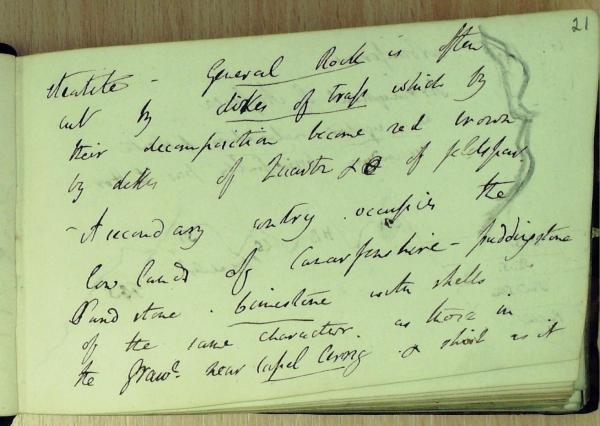 21
steatite - General Rock is often
cut by dikes of trap which by
their decomposition become red brown
by dikes of Quartz & of feldspar.
- A secondary contry occupies the
low lands of Canarfonshire - puddingstone
Sand stone. limestone with shells
of the same character. as those in
the Grauw. near Capel Cerrig &